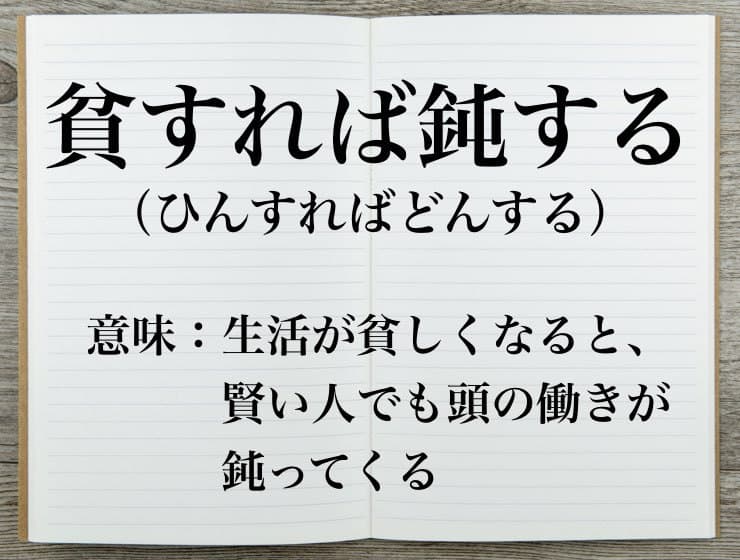 貧すれば鈍する
（ひんすればどんする）
意味：生活が貧しくなると、
賢い人でも頭の働きが
鈍ってくる